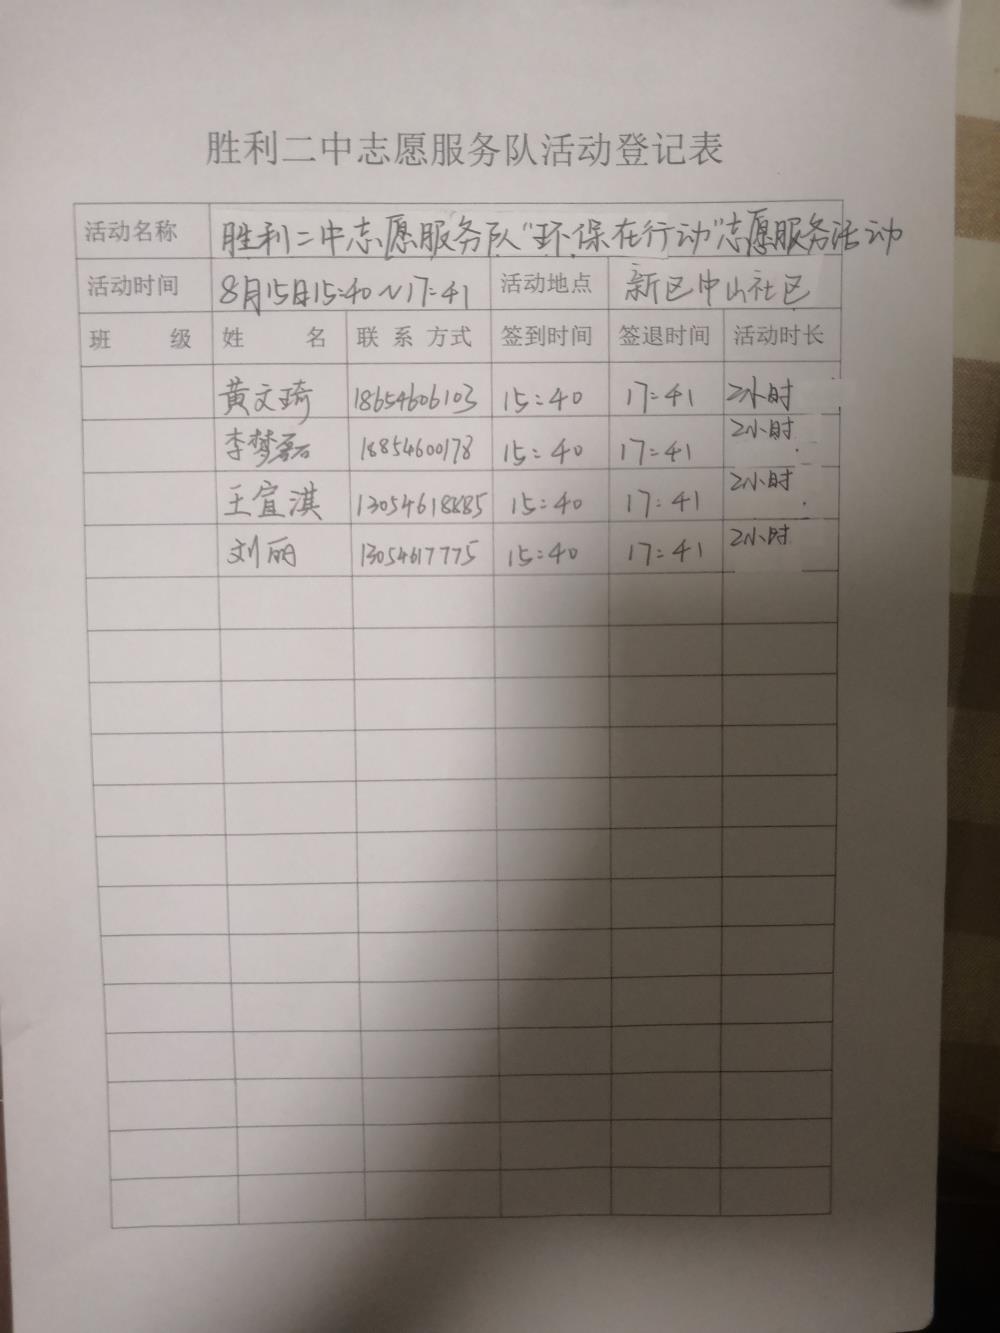 胜利二中志愿服务队活动登记表
活动名称 胜利二中志愿服务队“环保在行动”志愿服务活动
活动时间 8月15日15:40~17:41 活动地点 新区中山社区
班 级 姓 名 联系方式 签到时间 签退时间 活动时长
黄文琦 18654606103 15:40 17:41 2小时
李梦磊 18854600178 15:40 17:41 2小时
王宜淇 13054618885 15:40 17:41 2小时
刘丽 13054617775 15:40 17:41 2小时